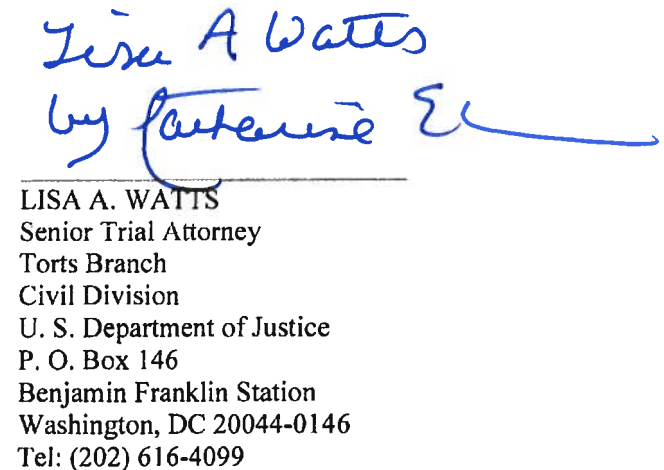 Lisa A Watts
by Catherine E
LISA A. WATTS
Senior Trial Attorney
Torts Branch
Civil Division
U. S. Department of Justice
P. O. Box 146
Benjamin Franklin Station
Washington, DC 20044-0146
Tel: (202) 616-4099